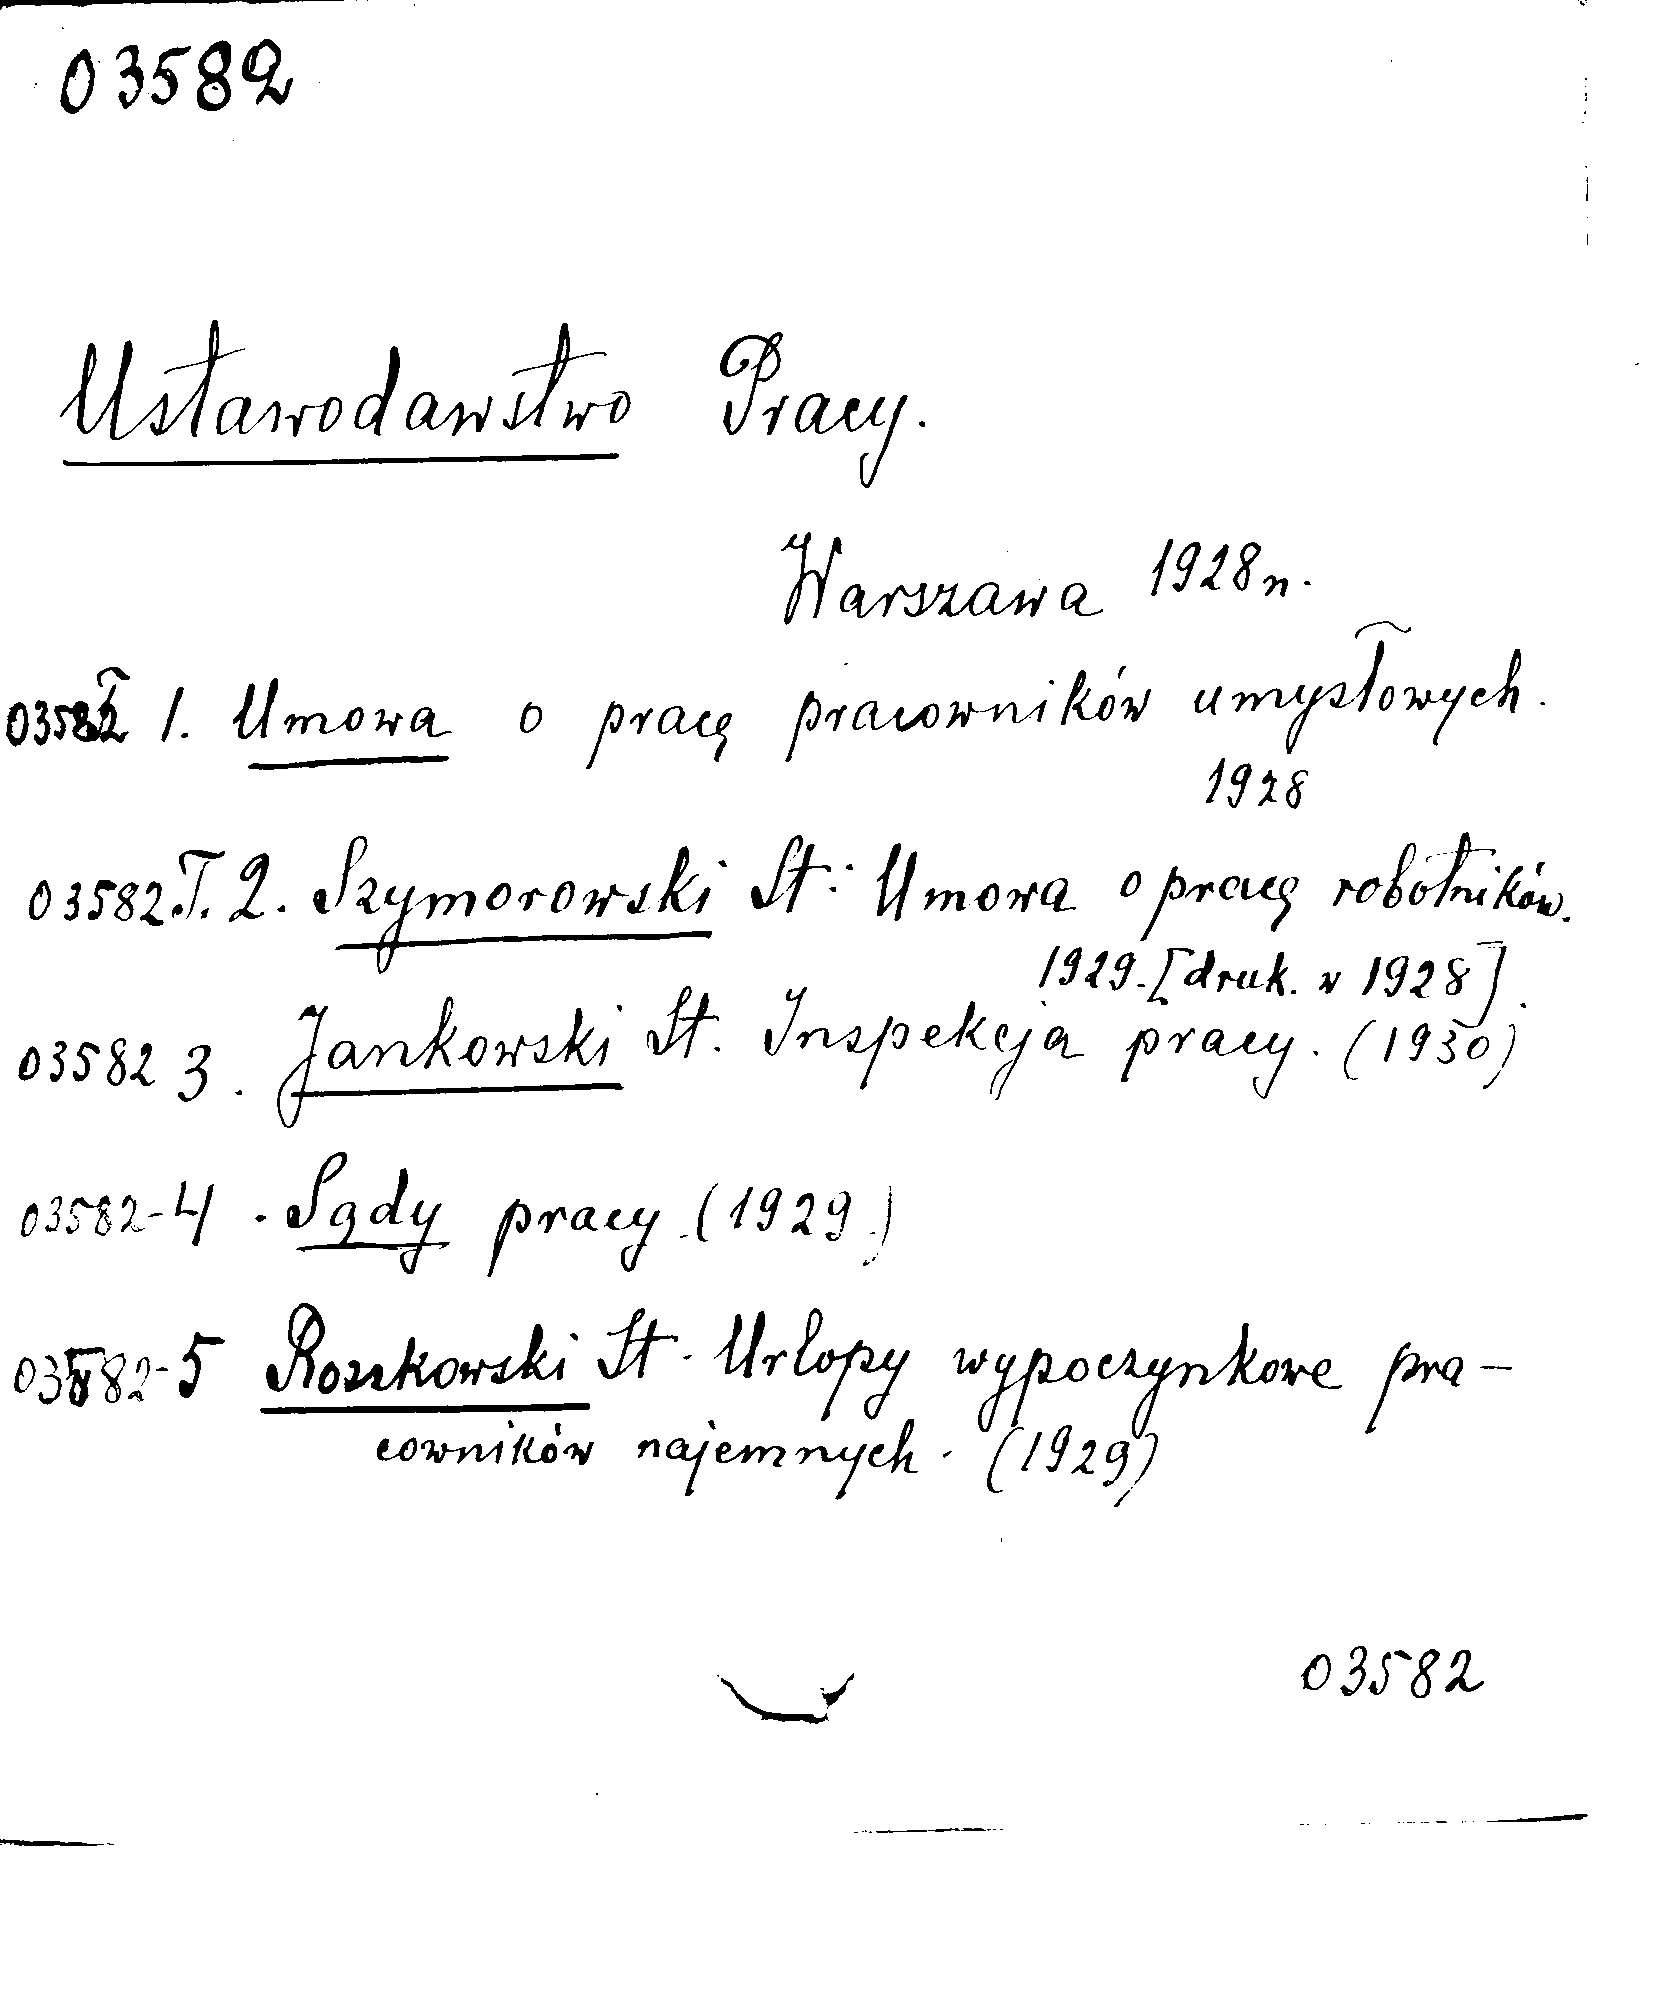 03582
Ustawodawstwo Pracy.
Warszawa 1928 n.
03582 T 1. Umowa o pracę pracowników umysłowych.
1928
03582 T. 2. Szymorowski St: Umowa o pracę robotników.
1929. [druk. w 1928].
03582 3. Jankowski St. Inspekcja pracy. (1930)
03582-4. Sądy pracy. (1929.)
03582-5 Roszkowski St. Urlopy wypoczynkowe pra-
cowników najemnych. (1929)
03582